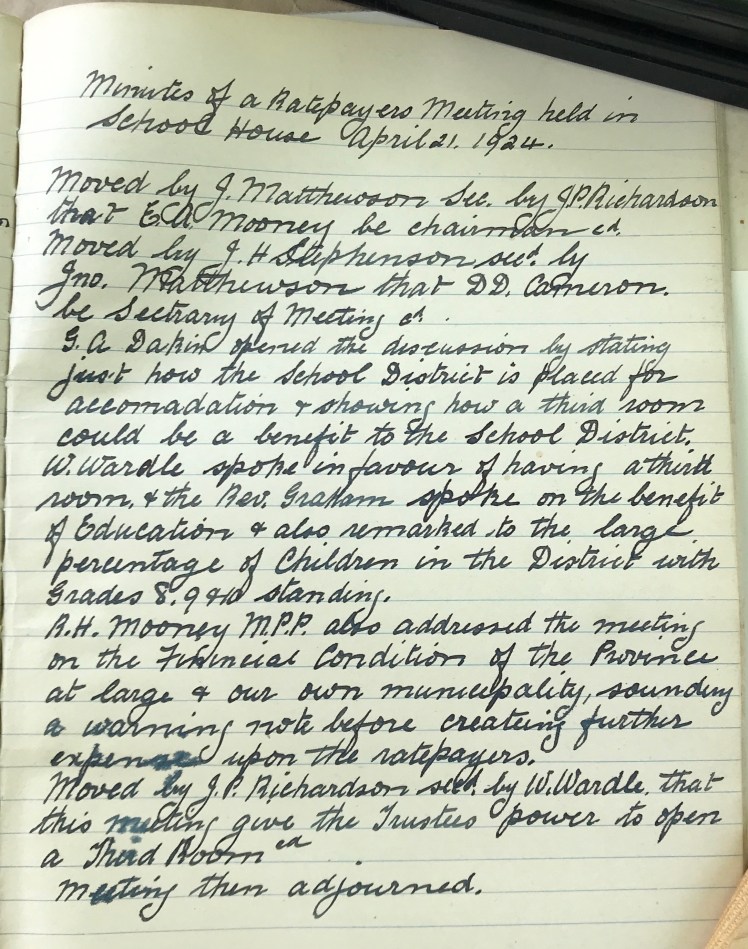 Minutes of a Ratepayers Meeting held in
School House April 21. 1924.
Moved by J. Matthewson Sec. by J.P. Richardson
that E.A. Mooney be chairman cd.
Moved by J. H Stephenson sec'd. by
Jno. Matthewson that D.D. Cameron.
be Sectrary of Meeting cd.
G. A Dakin opened the discussion by stating
just how the School District is placed for
accomadation & showing how a third room
could be a benefit to the School District.
W. Wardle spoke in favour of having a third
room. & the Rev. Graham spoke on the benefit
of Education & also remarked to the large
percentage of Children in the District with
Grades 8. 9 & 10 standing.
R.H. Mooney M.P.P. also addressed the meeting
on the Financial Condition of the Province
at large & our own municepality, sounding
a warning note before createing further
expense upon the ratepayers.
Moved by J. P. Richardson sec'd. by W. Wardle. that
this meeting give the Trustees power to open
a Third Room cd
Meeting then adjourned.